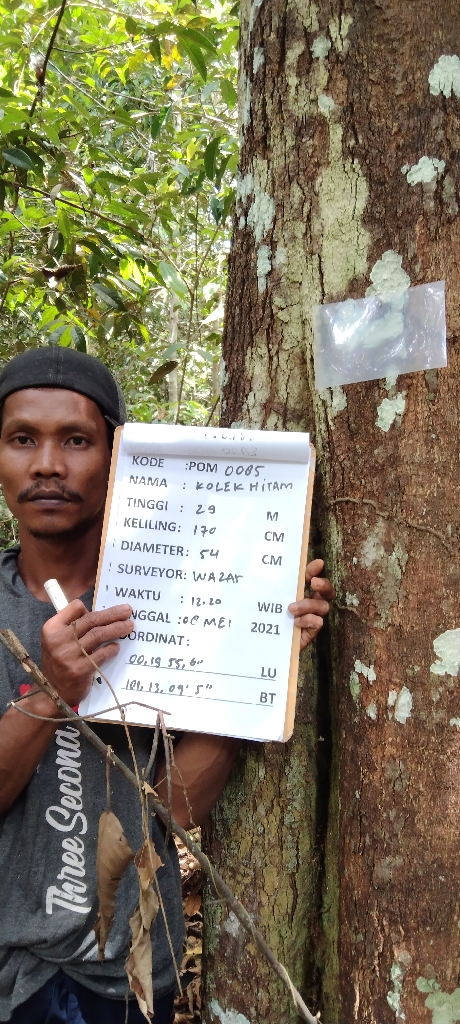 KODE :POM 0085
NAMA : KOLEK HITAM
TINGGI : 29 M
KELILING: 170 CM
DIAMETER: 54 CM
SURVEYOR: WAZAR
WAKTU : 12.20 WIB
NGGAL :06 MEI 2021
OORDINAT:
00.19 55,6" LU
101.13.09' 5" BT
Three Second